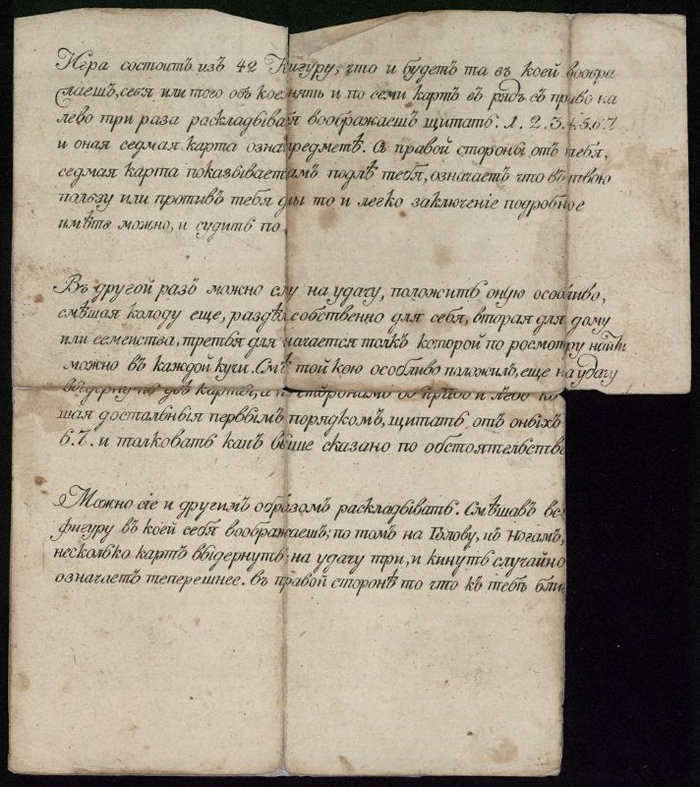 Игра состоитъ изъ 42 Фигуру, что и будетъ та въ коей вообра
жаешъ, себя или того объ коемъ и по семи картъ въ рядъ съ право на
лево три раза раскладывая воображаешъ щитать. 1. 2. 3. 4. 5. 6. 7.
и оная седмая карта означ предметъ. Съ правой стороны отъ тебя,
седмая карта показывает амъ подлѣ тебя, означаетъ что въ твою
пользу или противъ тебя то и легко заключение подробное
имѣть можно, и судить по
Въ другой разъ можно на удачу, положить оную особливо,
смѣшая колоду еще, раздѣл собственно для себя, вторая для дому
или семейства, третья для начается толкъ которой по росмотру найти
можно въ каждой кучи. Смѣ той кою особливо положилъ, еще на удачу
выдернуть двѣ карты, а по сторонамъ въ право и лѣво
шая достальныя первымъ порядкомъ, щитать отъ оныхъ
6. 7. и толковать какъ выше сказано по обстоятельства
Можно сіе и другимъ образомъ раскладывать. Смѣшавъ вс
фигуру въ коей себя воображаешъ; по томъ на Голову, къ ногамъ,
несколько картъ выдернуть на удачу три, и кинуть случайно
означаетъ теперешнее. въ правой сторонѣ то что къ тебѣ бли